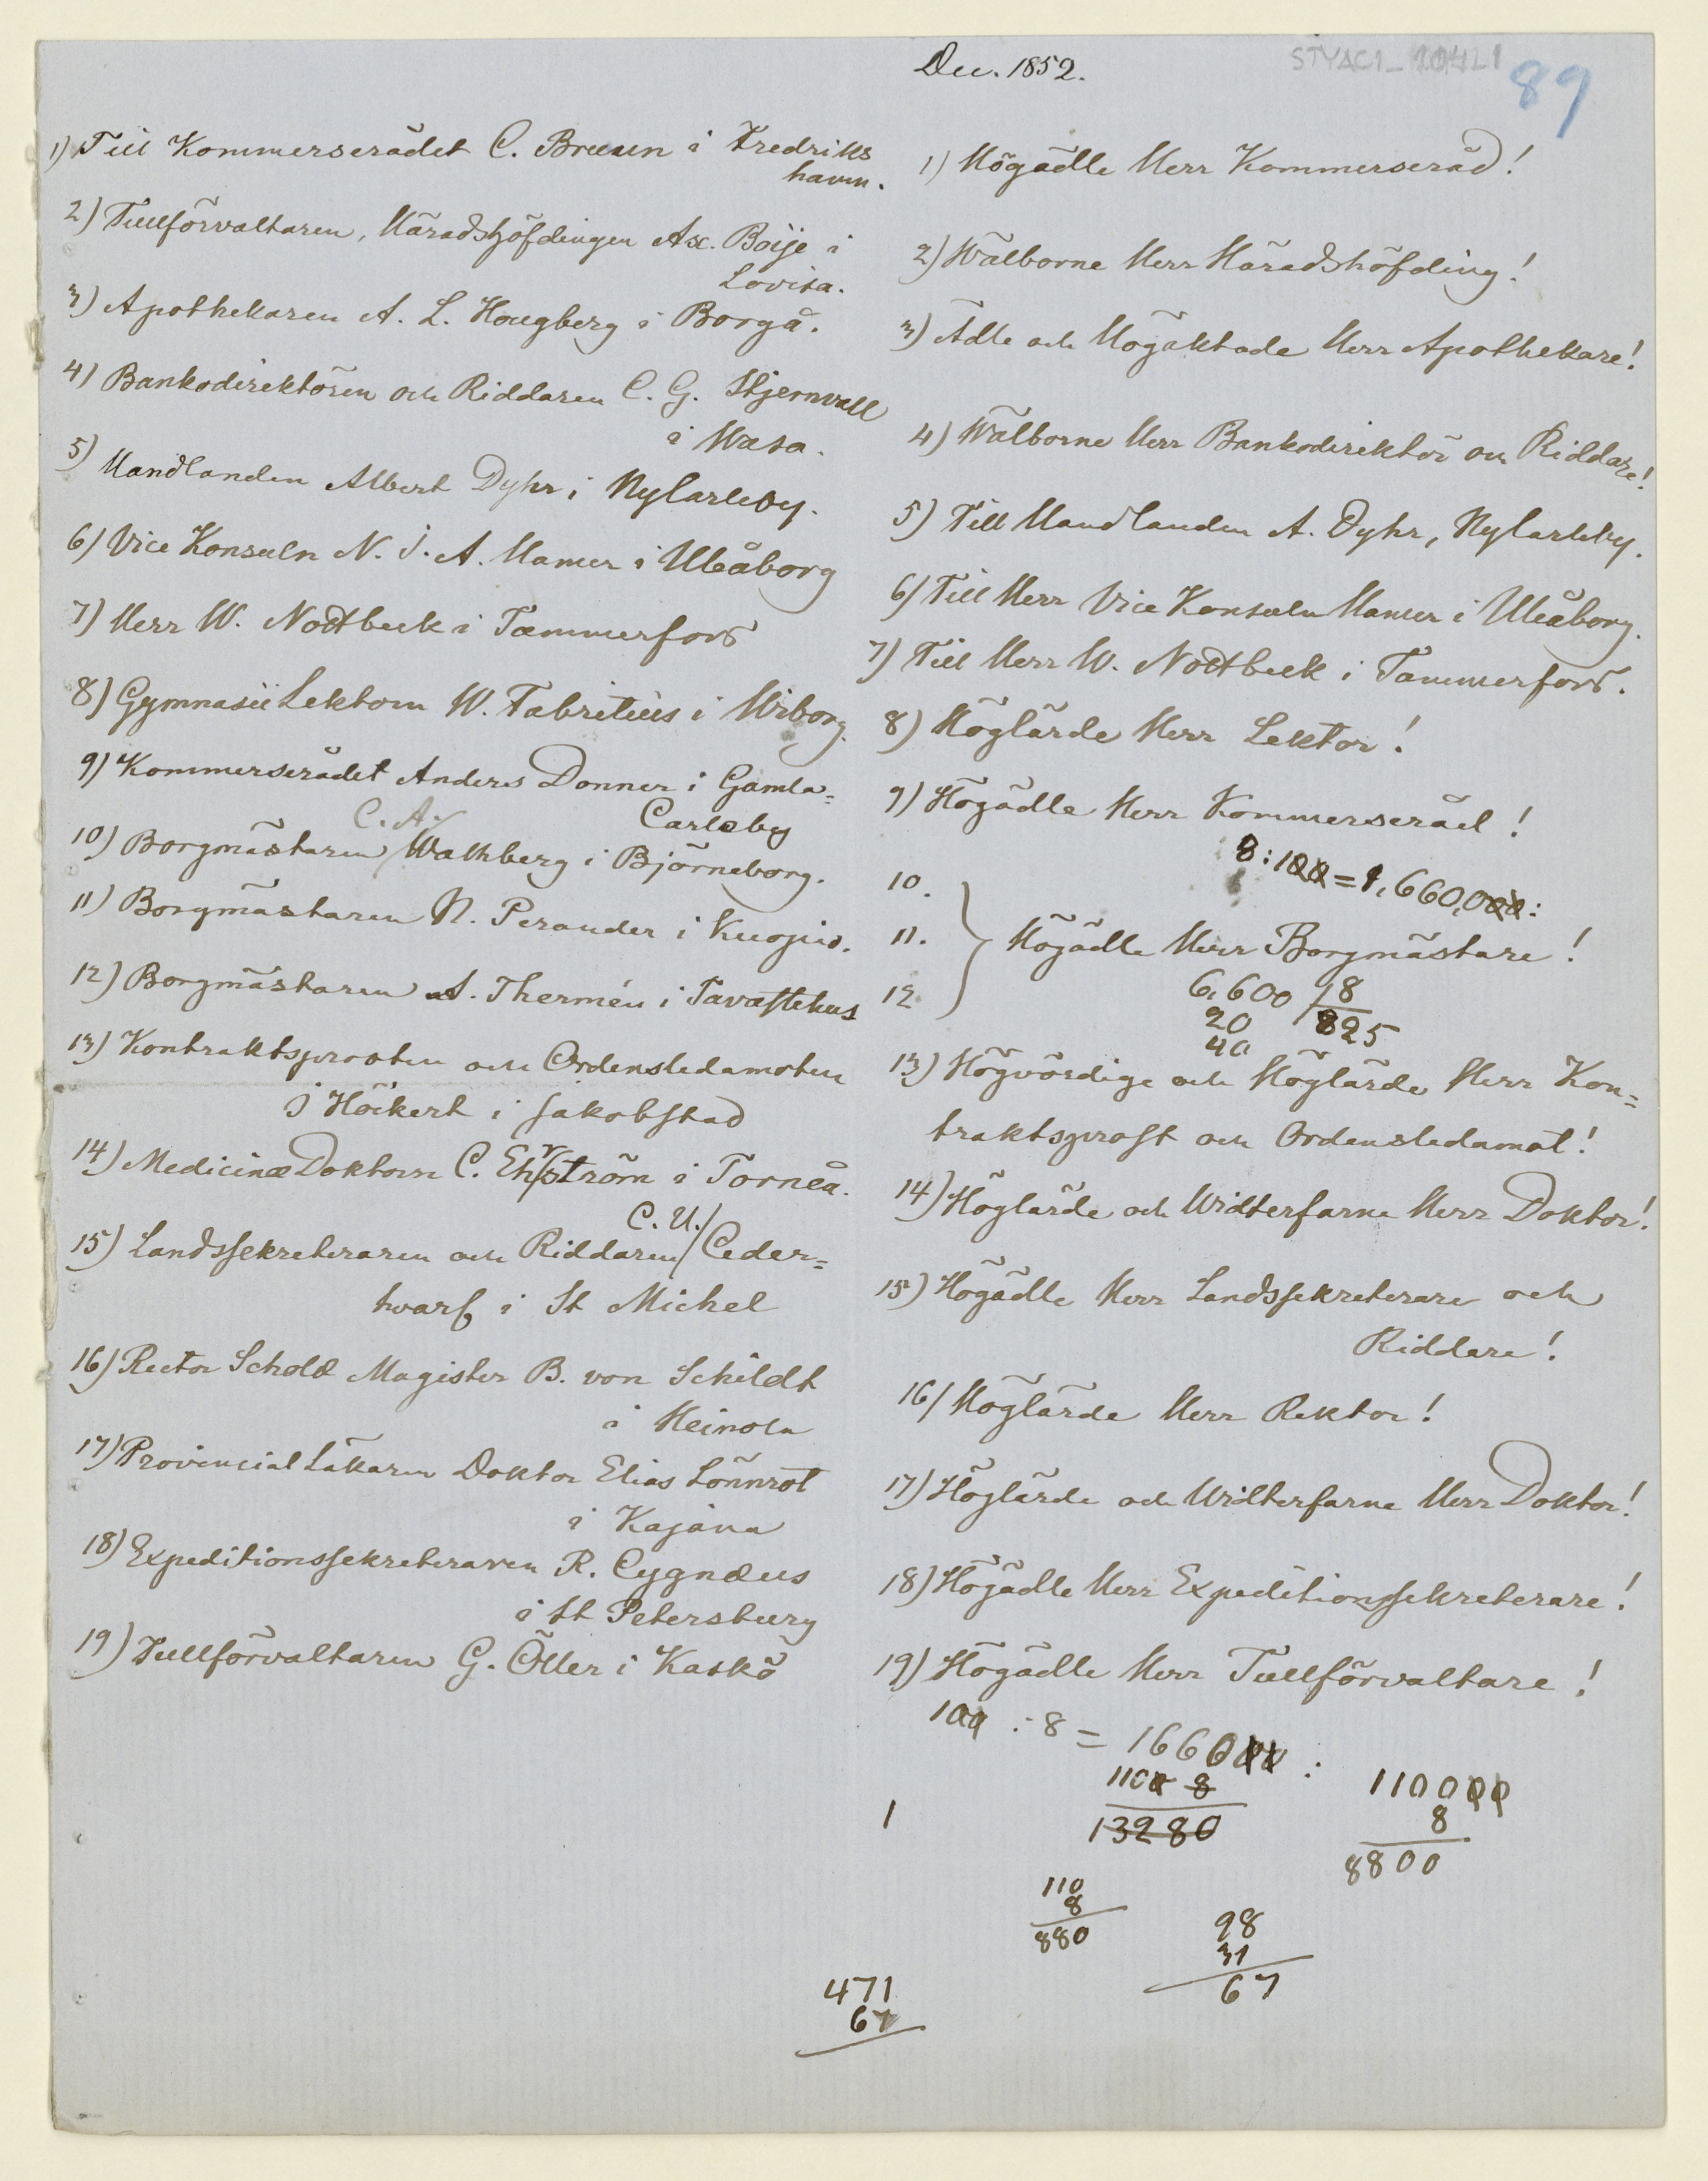 Dec. 1852.
89
1) Till Kommerserådet C. Bruun i Fredriks
hamn.
2) Tullförvaltaren, Häradshöfdingen Ax. Boije i
Lovisa.
3) Apothekaren A. L. Hougberg i Borgå.
4) Bankodirektören och Riddaren C. G. Stjernvall
i Wasa.
5) Handlanden Albert Dyhr i Nylarleby.
6) Vice Konsuln N. J. A. Hamer i Uleåborg
7) Herr W. Nottbeck i Tammerfors
8) Gymnasii Lektorn W. Fabritius i Wiborg.
9) Kommerserådet Anders Donner i Gamla=
Carleby
10) Borgmästaren C. A. Wahlberg i Björneborg.
11) Borgmästaren N. Perander i Kuopio.
12) Borgmästaren A. Thermén i Tavastehus
13) Kontraktsprosten och Ordensledamoten
J Höckert i Jakobstad
14) Medicinæ Doktorn C. Ehrström i Torneå.
15) Landssekreteraren och Riddaren C. U. Ceder=
hvarf i St Michel
16) Rector Scholæ Magister B. von Schildt
i Heinola
17) Provincial Läkaren Doktor Elias Lönnrot
i Kajana
18) Expeditionssekreteraren R. Cygnæus
i St Petersburg
19) Tullförvaltaren G. Öller i Kaskö
1) Högädle Herr Kommerseråd!
2) Wälborne Herr Häradshöfding!
3) Ädle och Högaktade Herr Apothekare!
4) Wälborne Herr Bankodirektör och Riddare!
5) Till Handlanden A. Dyhr, Nylarleby.
6) Till Herr Vice Konsuln Hamer i Uleåborg.
7) Till Herr W. Nottbeck i Tammerfors.
8) Höglärde Herr Lektor!
9) Högädle Herr Kommerseråd!
8:100=1,660,000:
10.
11. Högädle Herr Borgmästare!
12
6,600 / 8
20 825
40
13) Högvördige och Höglärde Herr Kon=
traktsprost och Ordensledamot!
14) Höglärde och Widterfarne Herr Doktor!
15) Högädle Herr Landssekreterare och
Riddare!
16) Höglärde Herr Rektor!
17) Höglärde och Widterfarne Herr Doktor!
18) Högädle Herr Expeditionssekreterare!
19) Högädle Herr Tullförvaltare!
100 : 8 = 166000 :
1100 8
13280
110000
8
8800
1
110
8
880
98
31
67
471
67